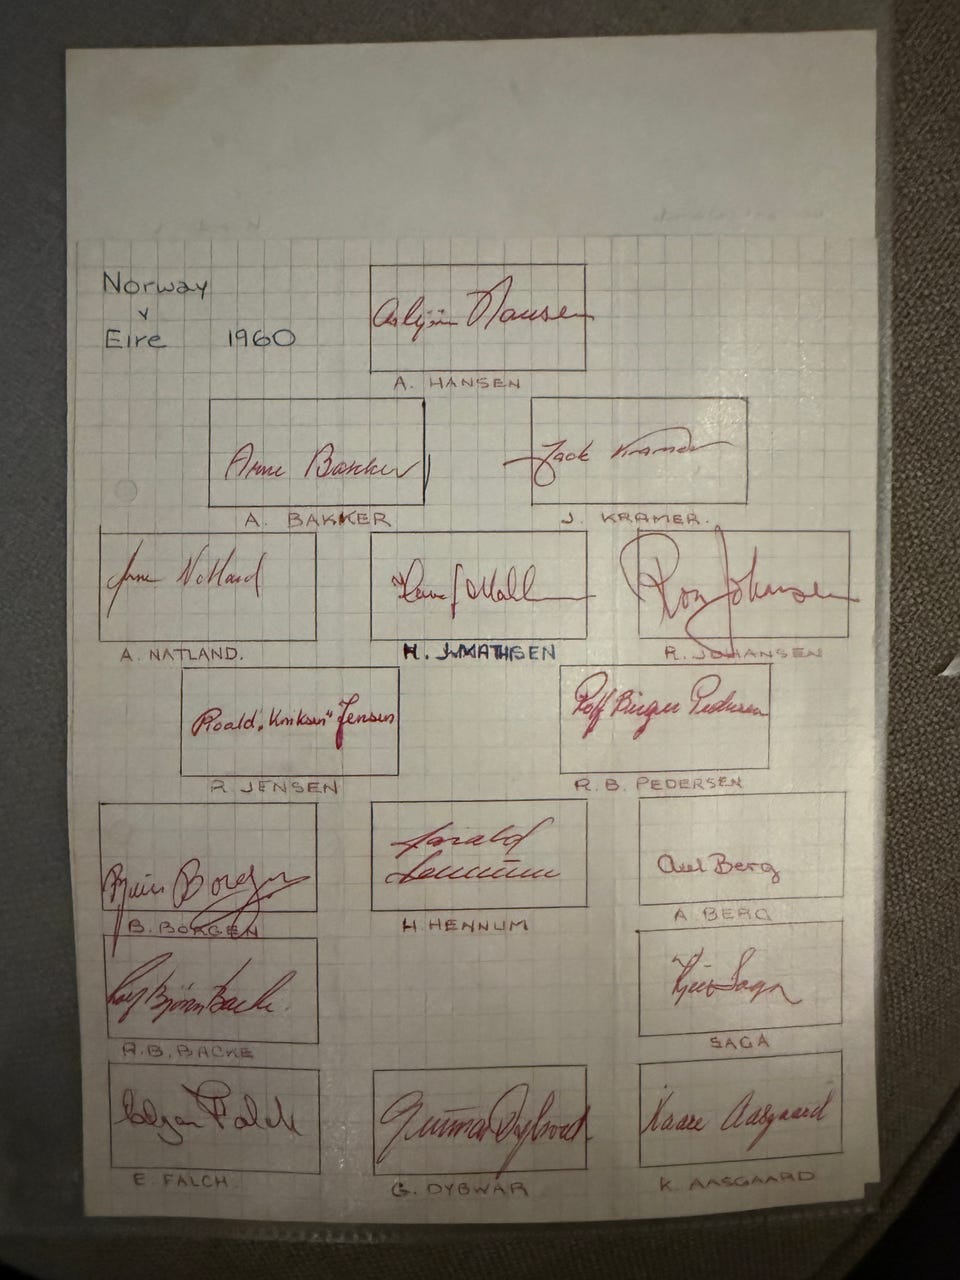 Norway
v
Eire 1960
Asbjørn Hansen
A. HANSEN
Arne Bakker
Jack Kramer
A. BAKKER
J. KRAMER.
Arne Natland
Roy Johansen
A. NATLAND.
H. J. MATHISEN
R. JOHANSEN
Roald „Kniksen" Jensen
Rolf Birger Pedersen
R. JENSEN
R. B. PEDERSEN
Bjørn Borgen
Harald Hennum
Axel Berg
B. BORGEN
H. HENNUM
A BERG
Rolf Bjørn Backe.
R.B. BACKE
SAGA
Edgar Falch
Gunnar Dybwad
Kaare Aasgaard
E. FALCH.
G. DYBWAR
K. AASGAARD